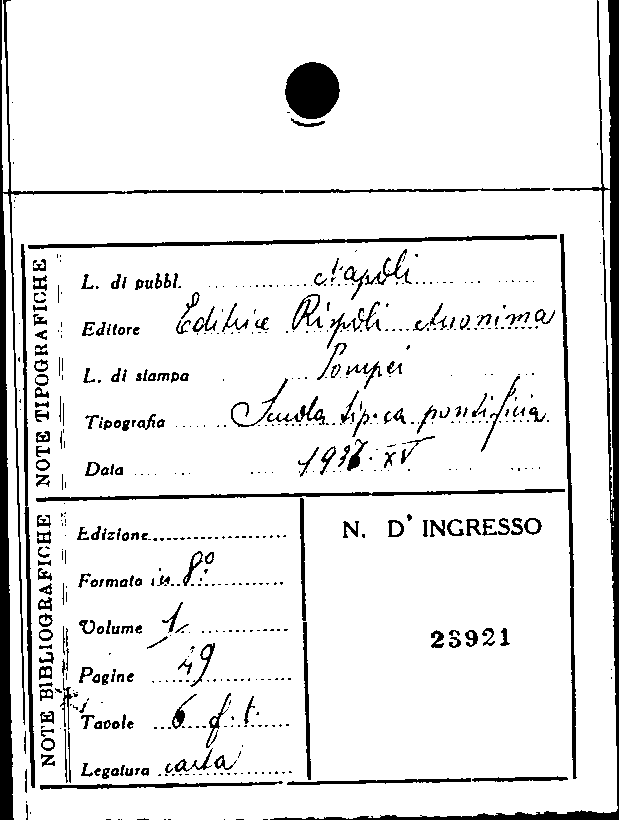 NOTE TIPOGRAFICHE
L. di pubbl. Napoli
Editore Editrice Rispoli Anonima
L. di stampa Pompei
Tipografia Scuola tipica pontificia
Data 1937. XV
NOTE BIBLIOGRAFICHE
Edizione
Formato in 8º
Volume 1
Pagine 49
Tavole 6 f. t.
Legatura carta
N. D' INGRESSO
23921